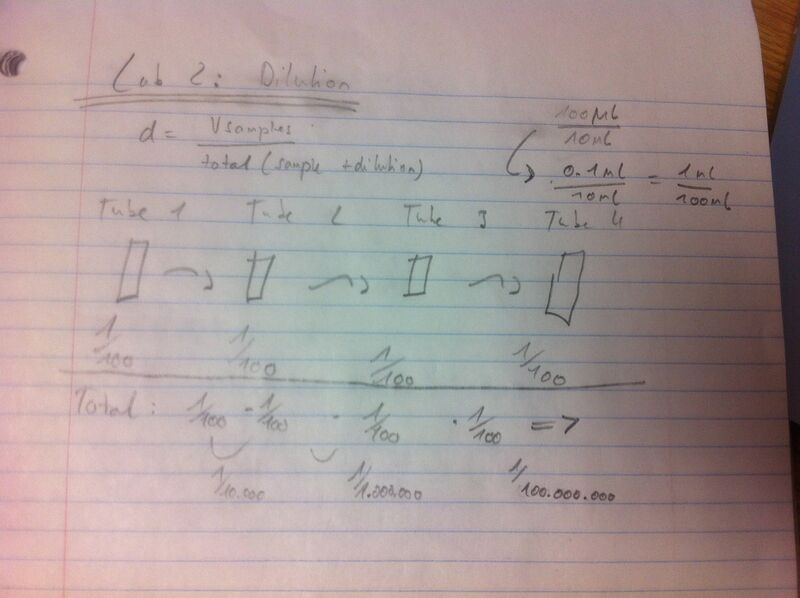 Lab 2: Dilution
d = Vsamples / total (sample + dilution)
100µl / 10ml
0.1ml / 10ml = 1ml / 100ml
Tube 1 Tube 2 Tube 3 Tube 4
1/100 1/100 1/100 1/100
Total: 1/100 · 1/100 · 1/100 · 1/100 =>
1/10.000 1/1.000.000 1/100.000.000